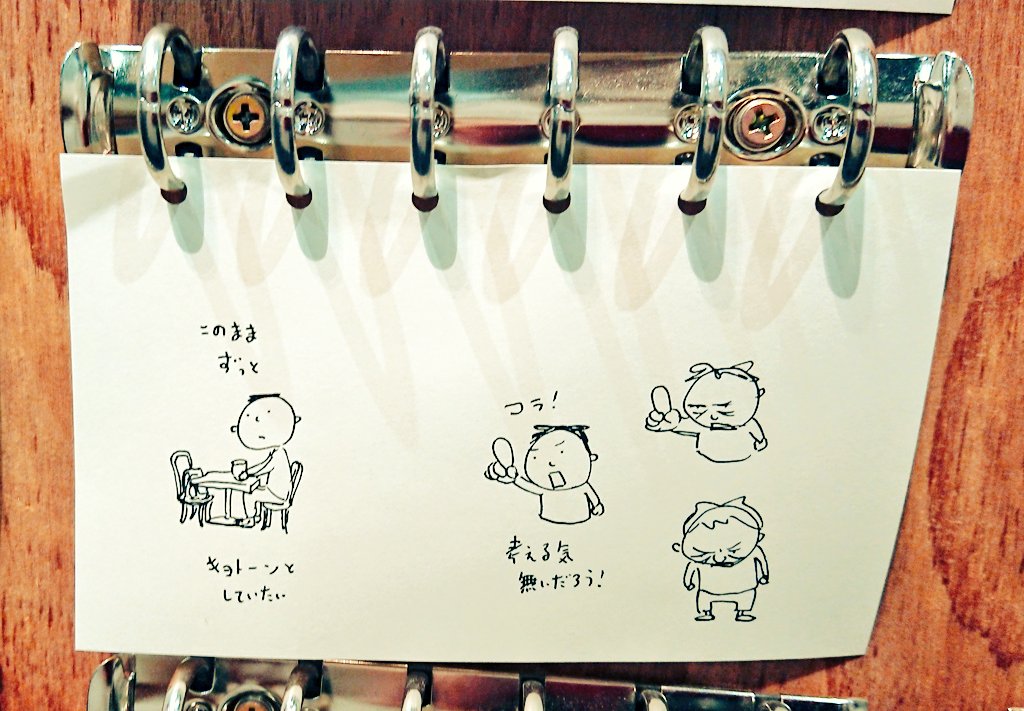 このまま
ずっと
キョトーンと
していたい
コラ!
考える気
無いだろう!